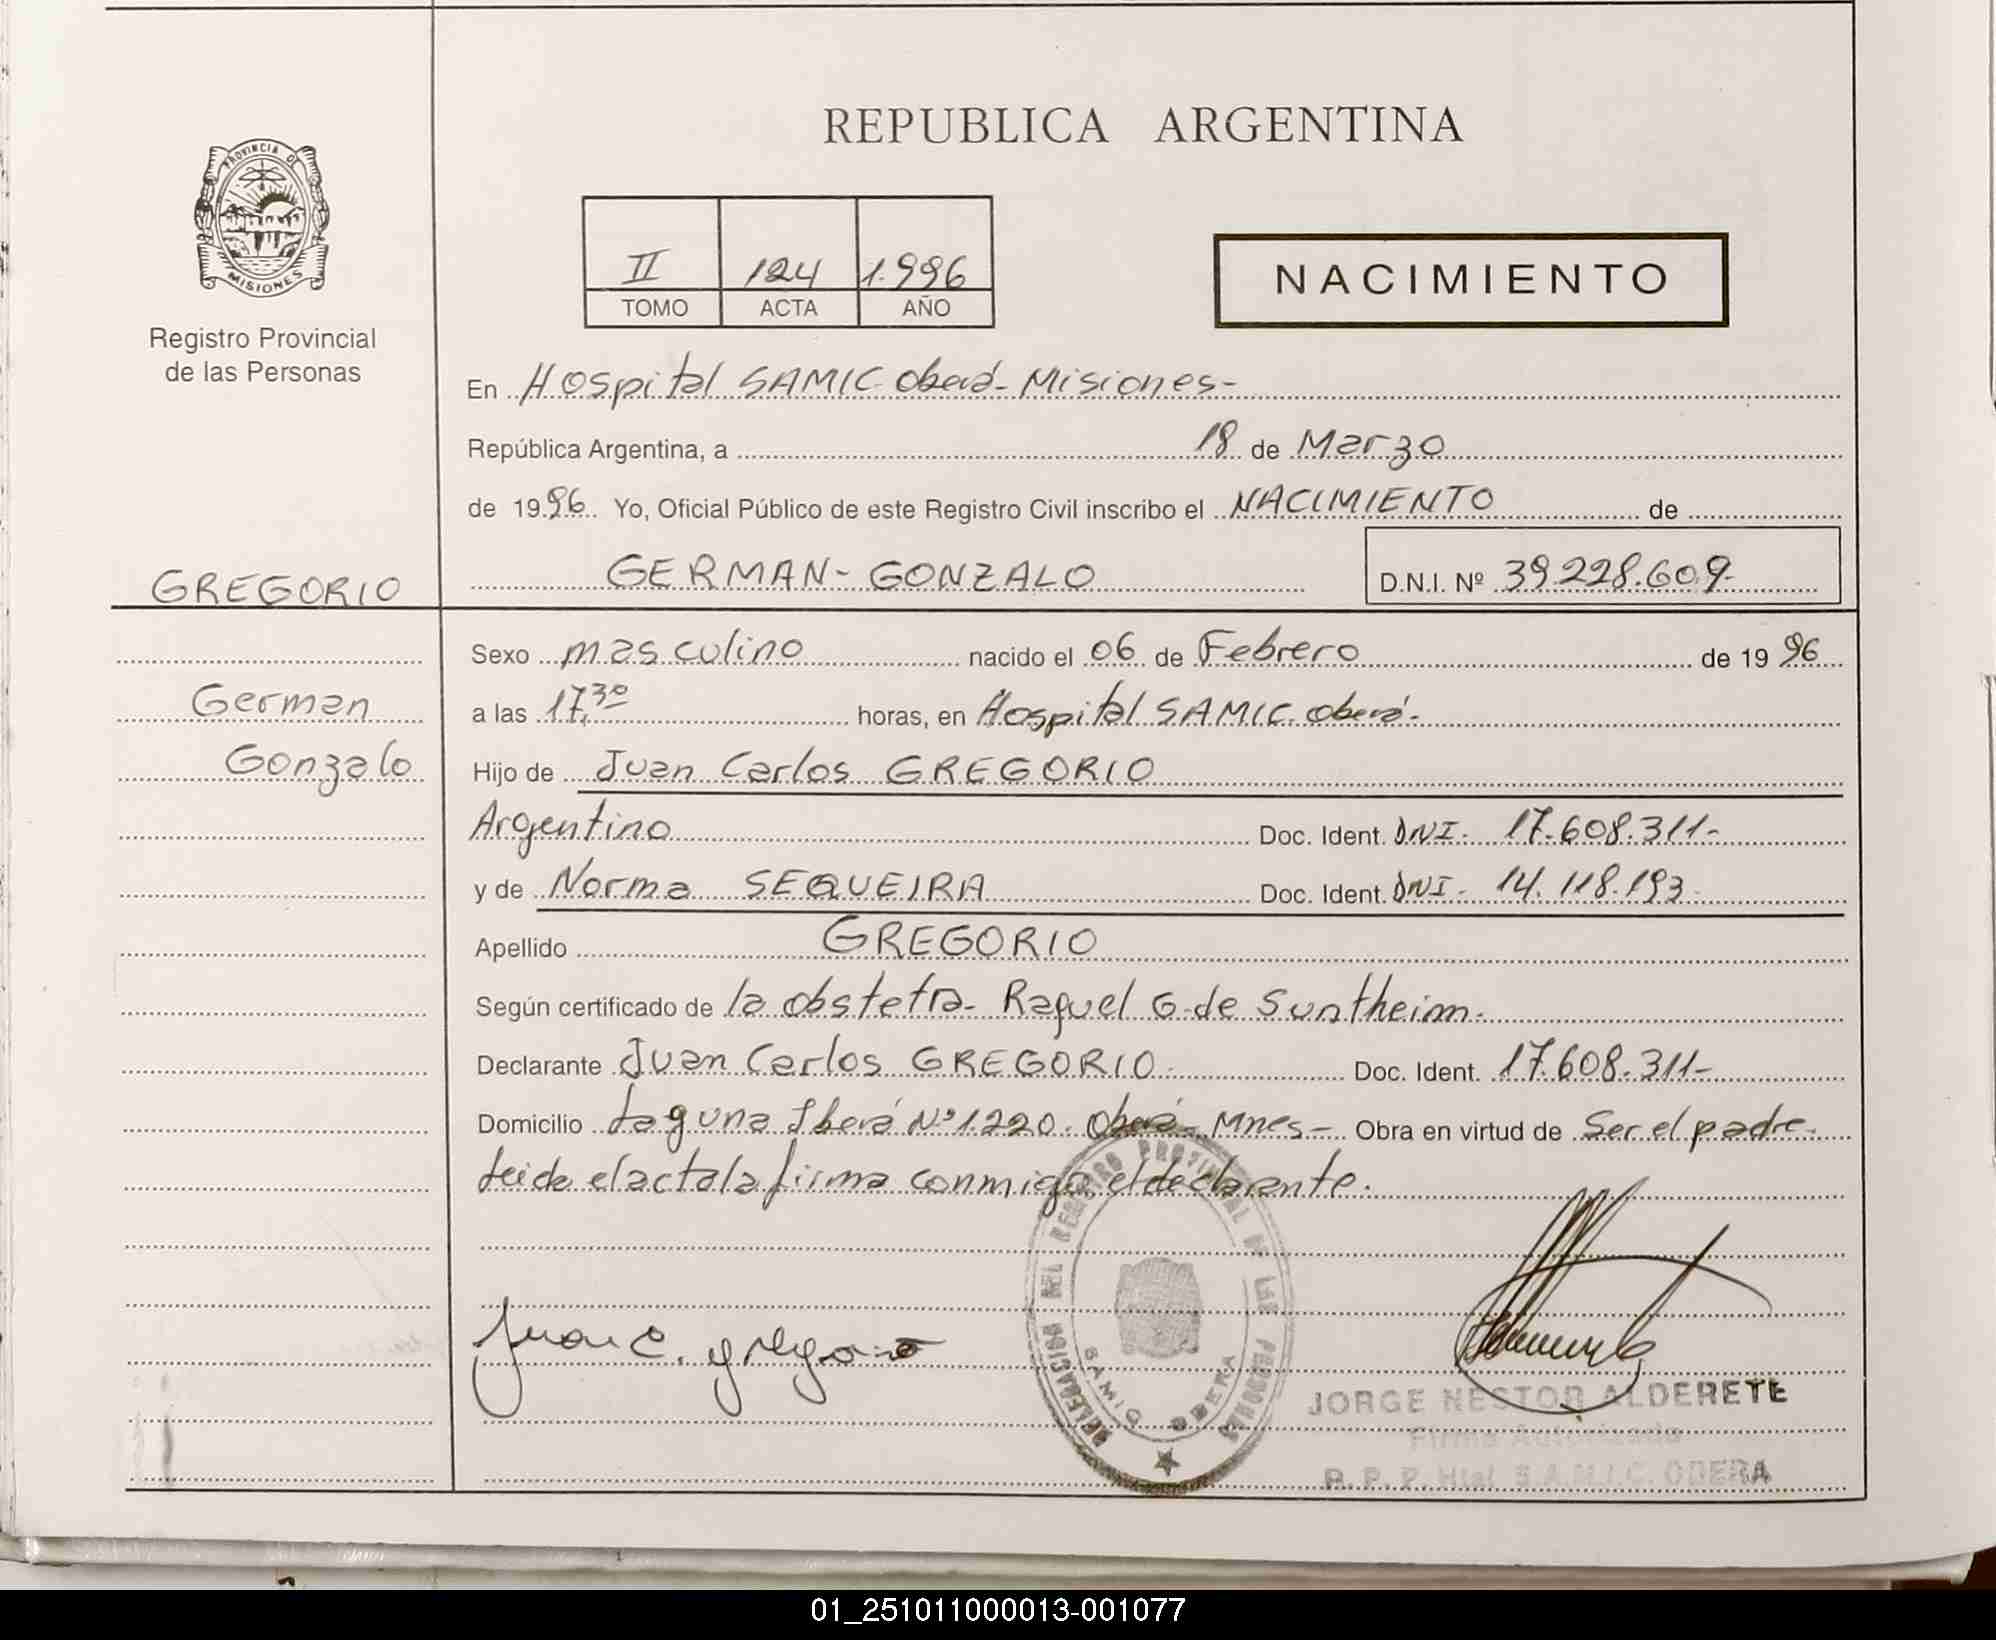 REPUBLICA ARGENTINA
PROVINCIA DE
MISIONES
Registro Provincial
de las Personas
II 124 1.996
TOMO ACTA AÑO
NACIMIENTO
En Hospital SAMIC. Oberá- Misiones-
República Argentina, a 18 de Marzo
de 1996 Yo, Oficial Público de este Registro Civil inscribo el NACIMIENTO de
GERMAN- GONZALO
D.N.I. Nº 39.228.609-
GREGORIO
German
Gonzalo
Sexo masculino nacido el 06 de Febrero de 1996
a las 17,30 horas, en Hospital SAMIC. Oberá-
Hijo de Juan Carlos GREGORIO
Argentino Doc. Ident. DNI- 17.608.311-
y de Norma SEQUEIRA Doc. Ident. DNI- 14.118.193-
Apellido GREGORIO
Según certificado de la obstetra- Raquel G. de Suntheim-
Declarante Juan Carlos GREGORIO. Doc. Ident. 17.608.311-
Domicilio Laguna Iberá Nº 1.220. Oberá- Mnes- Obra en virtud de Ser el padre.
Leida el acta la firma conmigo el declarante.
Juan C. gregorio
DELEGACION DEL REGISTRO PROVINCIAL DE LAS PERSONAS
SAMIC OBERA
JORGE NESTOR ALDERETE
Firma Autorizada
R. P. P. Htal. S.A.M.I.C. OBERA
01_251011000013-001077